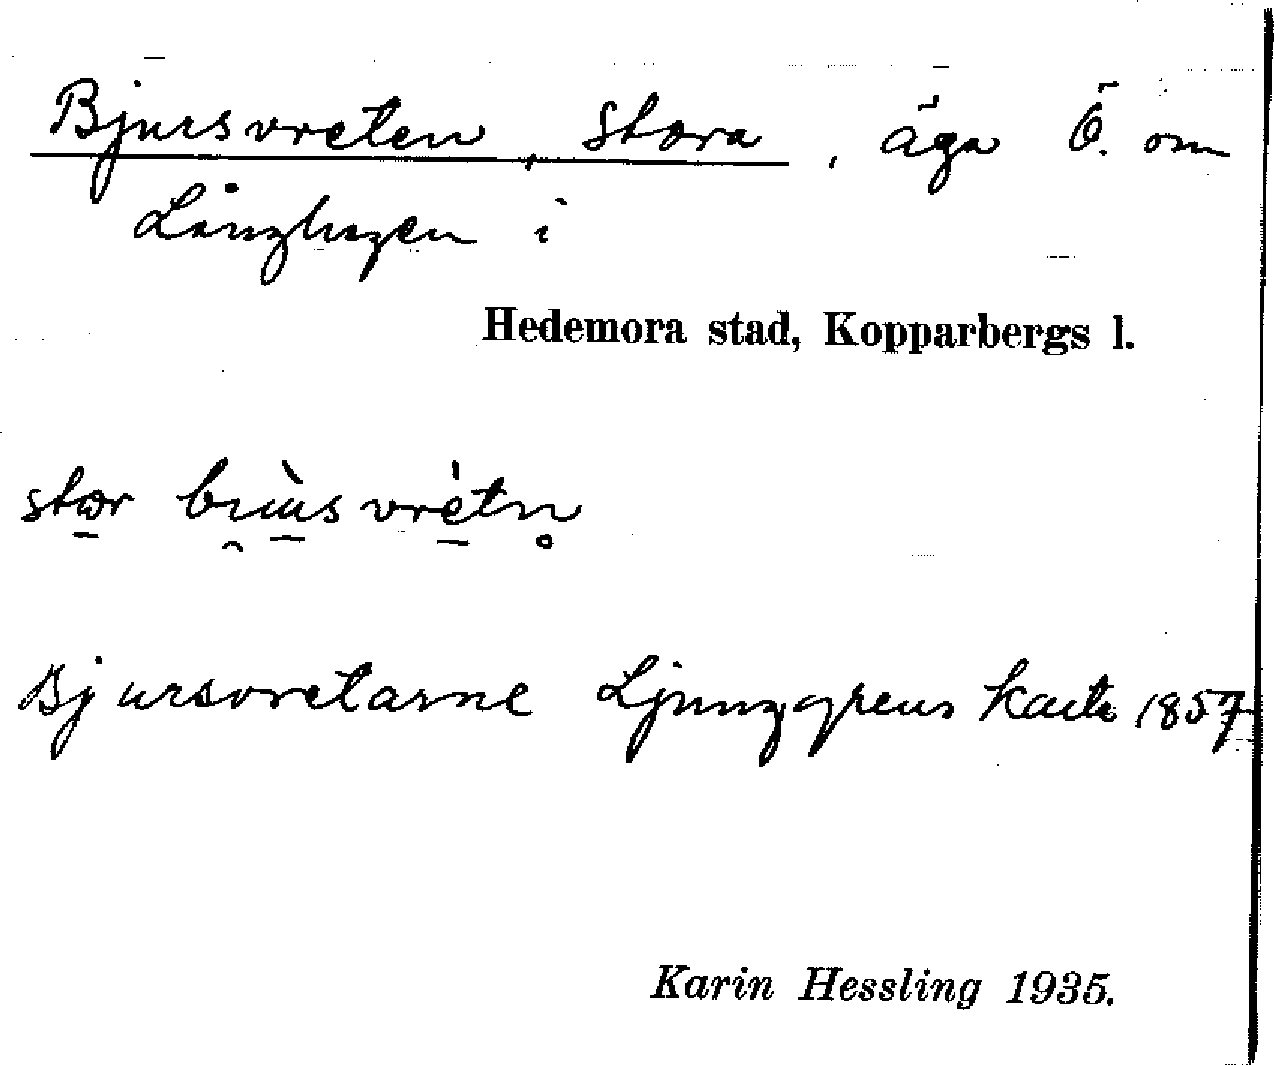 Bjursvreten, Stora, äga Ö. om
Långhagen i
Hedemora stad, Kopparbergs l.
stor
Bjursvretarne Ljunggrens karta 1857
Karin Hessling 1935.